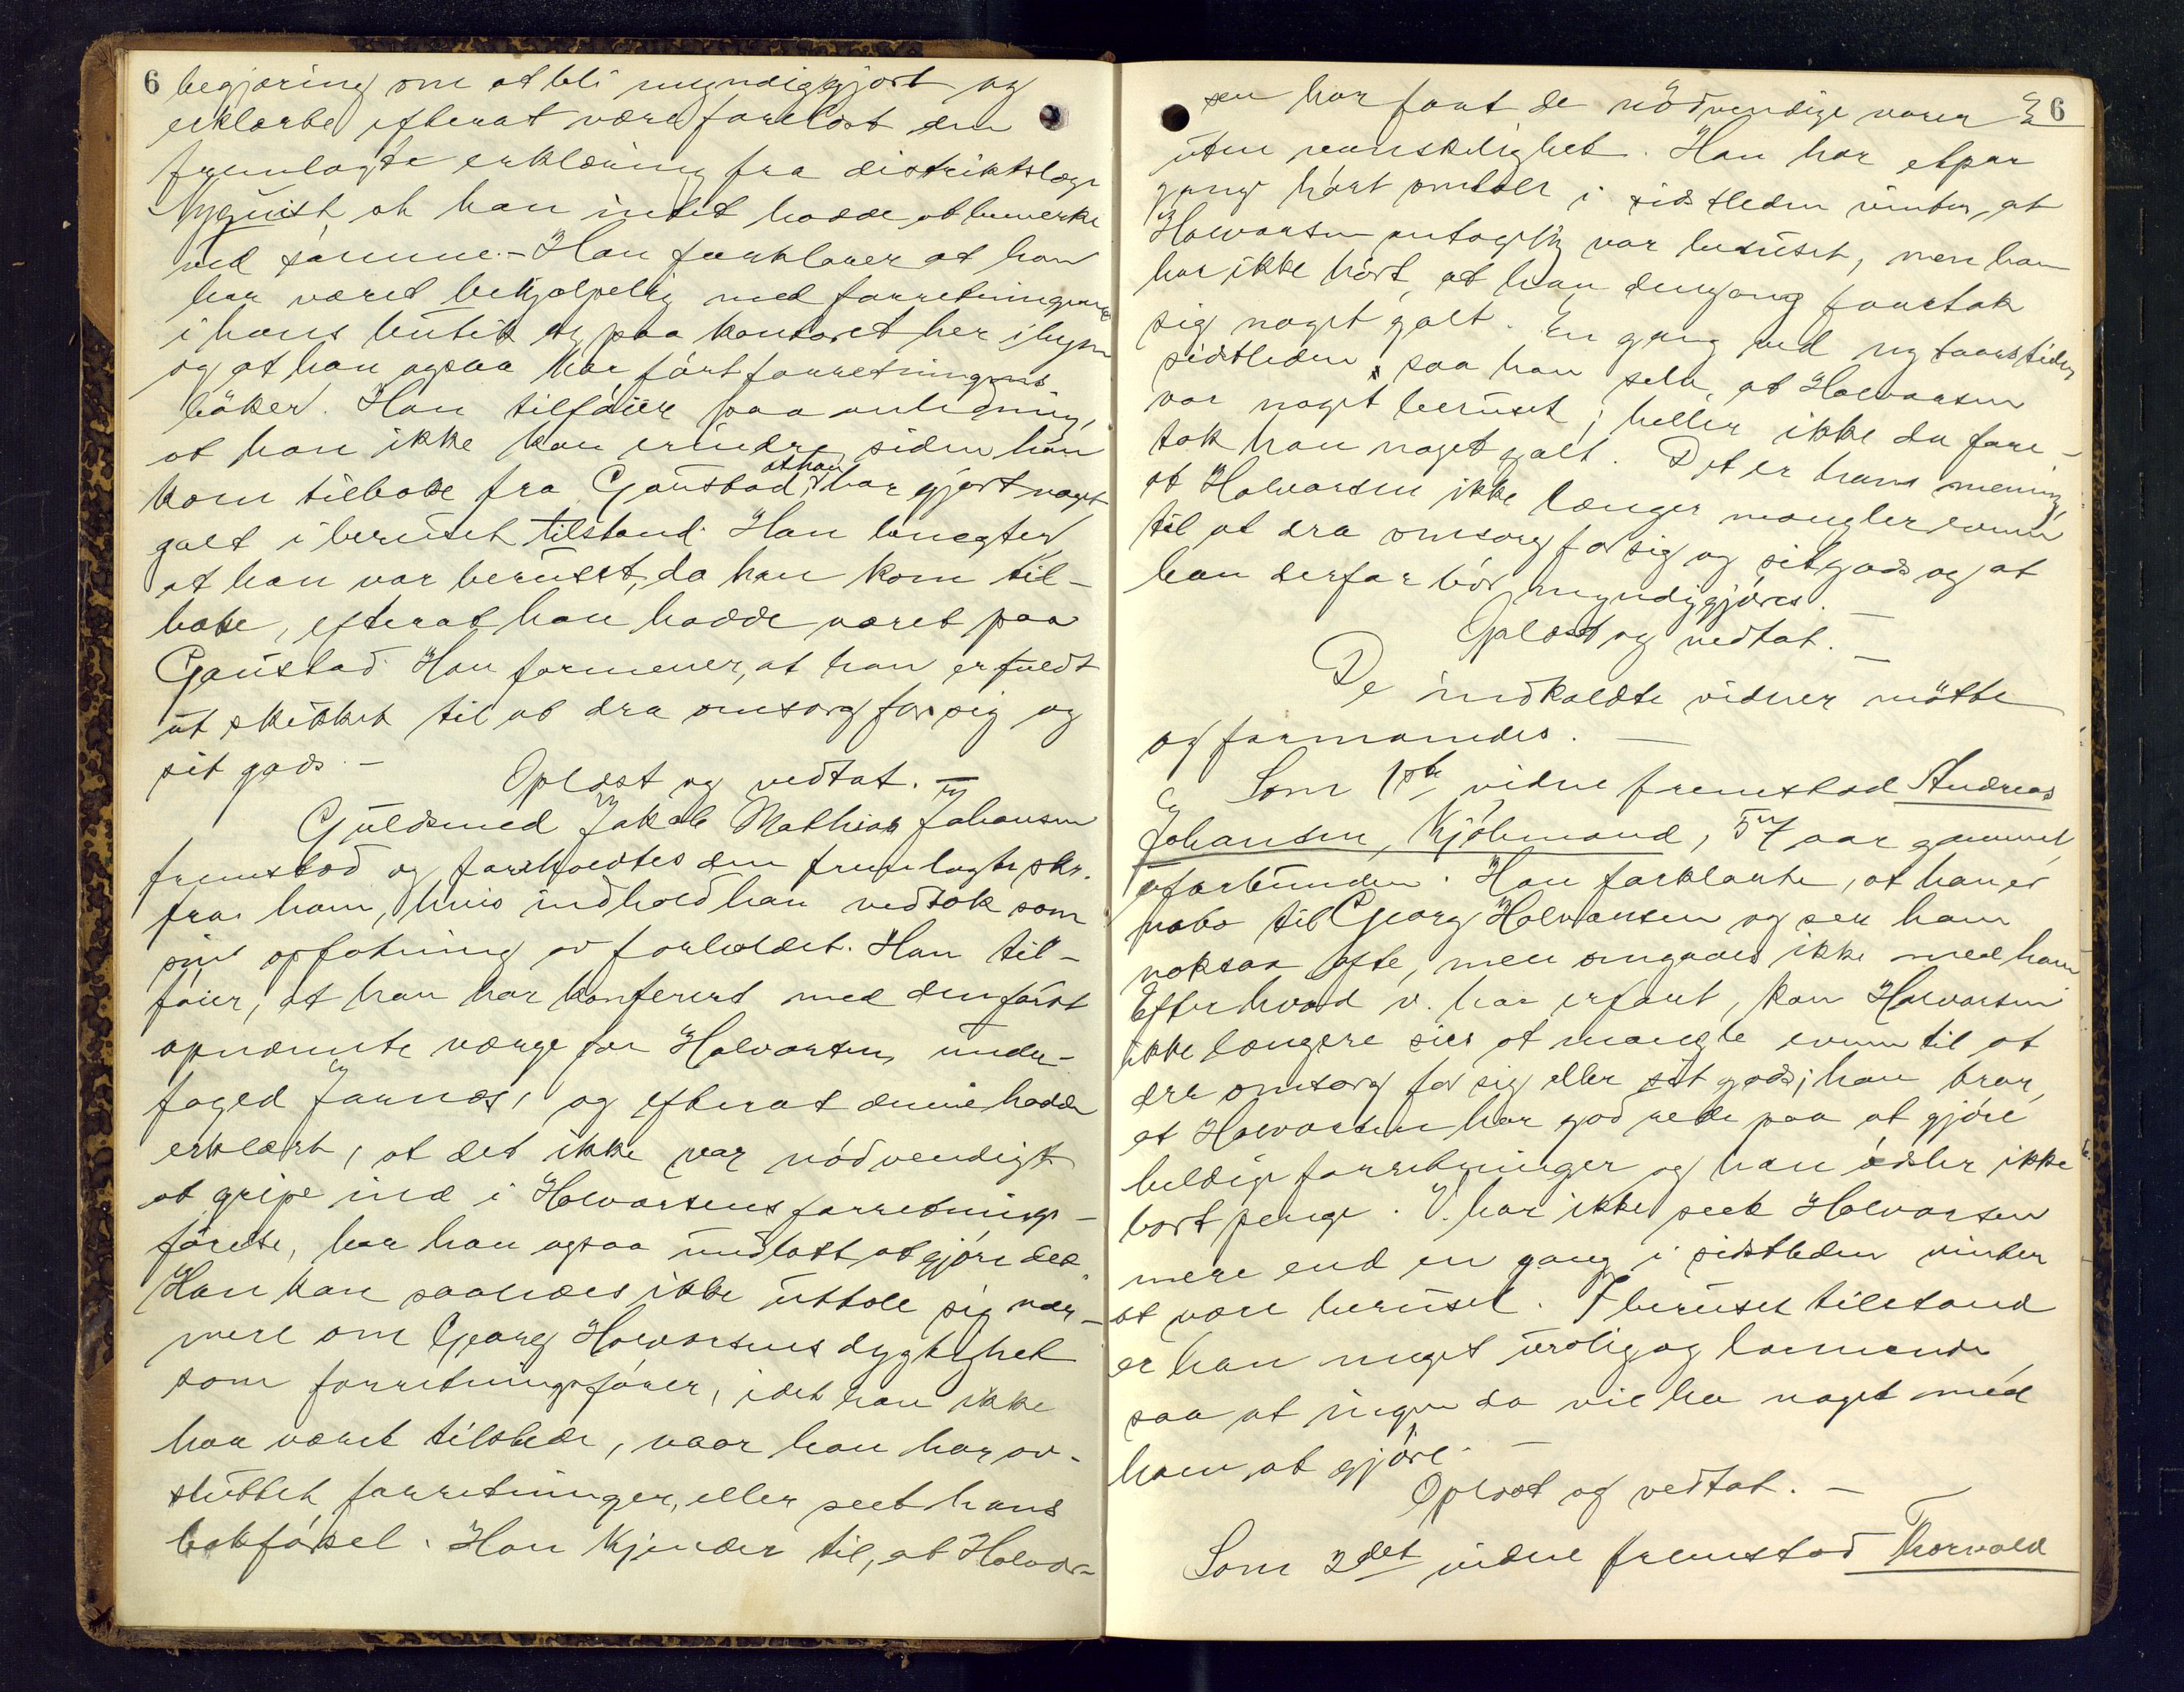 6 begjæring om at bli myndiggjort og
erklærte efterat være forelæst den
fremlagte erklæring fra distriktslæge
Nyquist, at han intet hadde at bemerke
ved samme. – Han forklarer at han
har været behjælpelig med forretningerne
i hans butik og paa kontoret her i byen
og at han ogsaa har ført forretningens
bøker. Han tilføier paa anledning,
at han ikke kan erindre siden han
kom tilbake fra Gaustad, at han har gjort noget
galt i beruset tilstand. Han benegter
at han var beruset, da han kom til-
bake, efterat han hadde været paa
Gaustad. Han formener, at han er fuldt
ut skikket til at dra omsorg for sig og
sit gods. –
Oplæst og vedtat. –
Guldsmed Jakob Mathias Johansen
fremstod og forehodtes den fremlagte skr.
fra ham, hvis indhold han vedtok som
sin opfatning av forholdet. Han til-
føier, at han har konferert med den først
opnævnte værge for Halvorsen, under-
foged Jarnæs, og efterat denne hadde
erklært, at det ikke var nødvendigt
at gripe ind i Halvorsens forretnings-
førelse, har han ogsaa undlatt at gjøre det.
Han kan saaledes ikke uttale sig nær-
mere om Georg Halvorsens dygtighet
som forretningsfører, idet han ikke
har været tilstede, naar han har av-
sluttet forretninger, eller seet hans
bokførsel. Han kjender til, at Halvor-
sen har faat de nødvendige varer 6
uten vanskelighet. Han har etpar
gange hørt omtale i sidstleden vinter, at
Halvorsen antagelig var beruset, men han
har ikke hørt, at han dengang foretok
sig noget galt. En gang ved nytaarstiden
sidstleden saa han selv, at Halvorsen
var noget beruset; heller ikke da fore-
tok han noget galt. Det er hans mening,
at Halvorsen ikke længer mangler evnen
til at dra omsorg for sig og sit gods og at
han derfor bør myndiggjøres. –
Oplæst og vedtat. –
De indkaldte vidner møtte
og formanedes. –
Som 1ste vidne fremstod Andreas
Johansen, Kjøbmand, 57 aar gammel,
uforbunden. Han forklarte, at han er
nabo til Georg Halvorsen og ser ham
noksaa ofte, men omgaaes ikke med ham.
Efter hvad v. har erfaret, kan Halvorsen
ikke længere sies at mangle evnen til at
dra omsorg for sig eller sit gods; han tror,
at Halvorsen har god rede paa at gjøre
heldige forretninger og han ødsler ikke
bort penge. V. har ikke seet Halvorsen
mere end en gang i sidstleden vinter
at være beruset. I beruset tilstand
er han meget urolig og larmende,
saa at ingen da vil ha noget med
ham at gjøre. –
Oplæst og vedtat. –
Som 2det vidne fremstod Thorvald